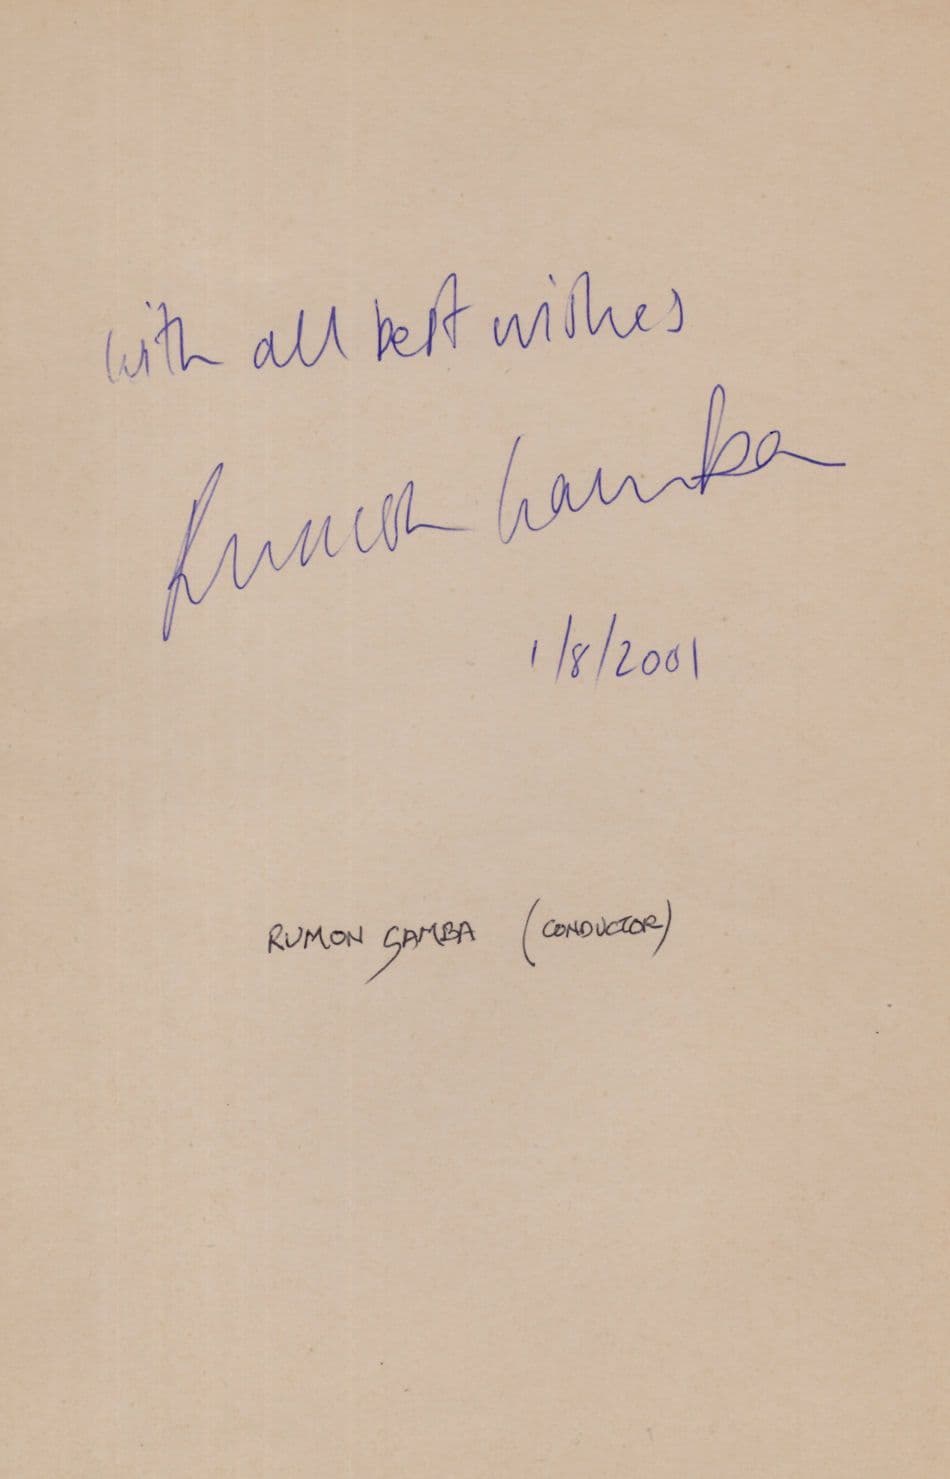 with all best wishes
Rumon Gamba
1/8/2001
RUMON GAMBA (CONDUCTOR)